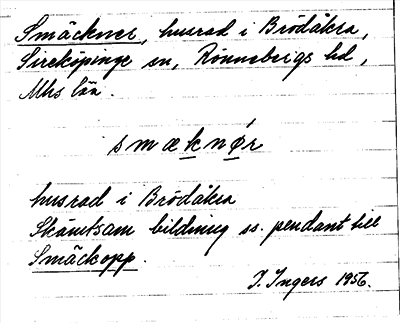 Smäckner, husrad i Brödåkra,
Sireköpinge sn, Rönnebergs hd,
Mhs län.
smæknør
husrad i Brödåkra
Skämtsam bildning ss. pendant till
Smäckopp.
I. Ingers 1956.